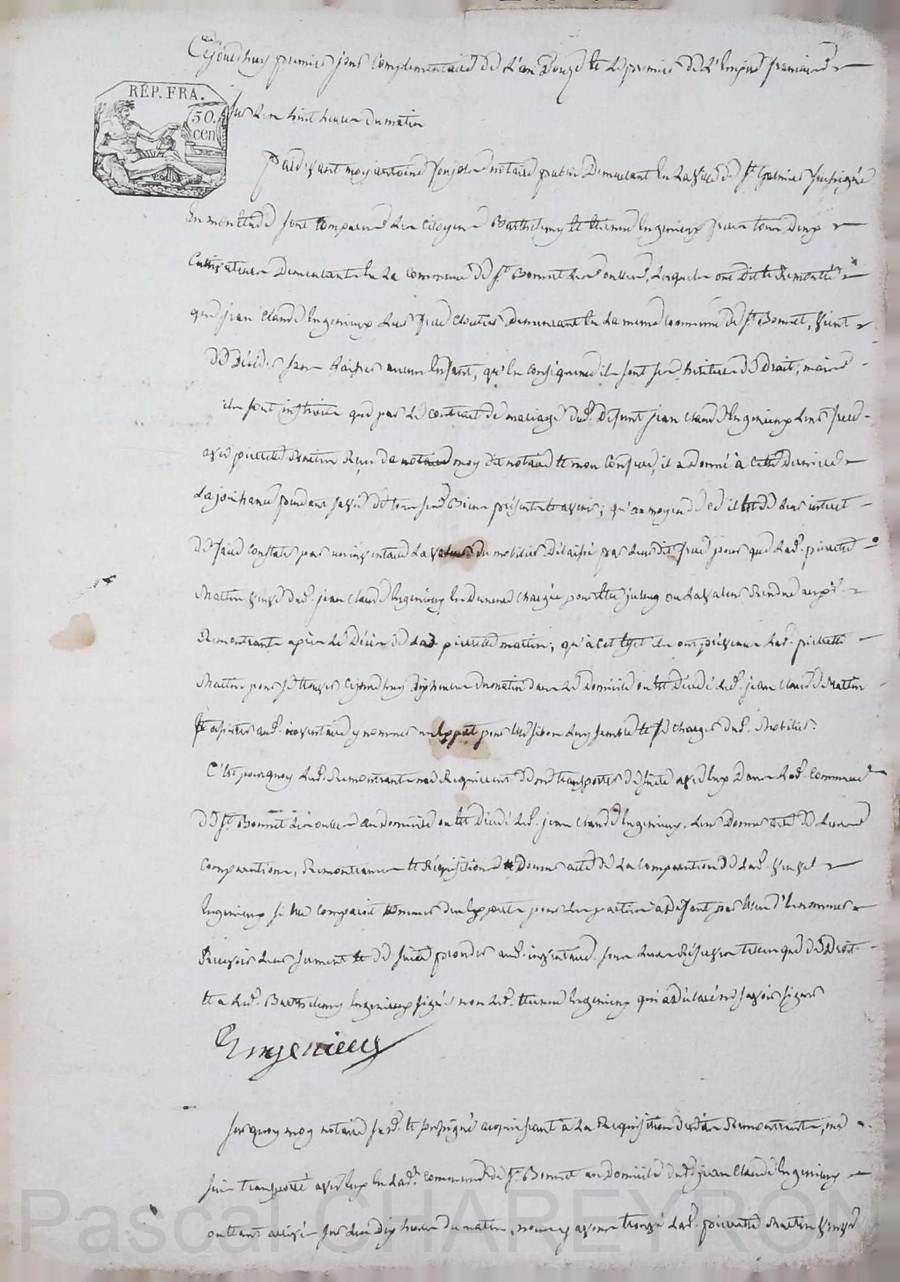 Cejourdhuy premier jour Complementaire de L'an Douze le premier de L'Empire francais
REP. FRA.
50. cen
sur Les huit heures du matin
Pardevant moy antoine notaire public Demeurant En La Ville de St. Galmier Soussigné
Sont Comparus Les Citoyens Barthelemy et Etienne Ingenieux freres tous Deux
Cultivateurs Demeurants En La Commune de St. Bonnet Les oulles, Lesquels ont Dit et Remontré
que jean Claude Ingenieux Leur frere Demeurant En La meme Commune de St. Bonnet, Vient
de Déceder sans Laisser aucun Enfant, qu'En Conséquence ils sont ses héritiers de Droit, mais
ils sont instruits que par Le Contrat de mariage dud. Defunt jean Claude Ingenieux Leur frere
avec pierrette mattin Reçu de moy dit notaire et mon Confrere, il a Donné à Cette Derniere
La jouissance pendant sa vie de tous ses Biens présents et avenir; qu'au moyen de ce il Est de Leur interet
de faire Constater par un inventaire La valeur du mobilier Délaissé par Leur dit frere pour que Lad. pierrette
Mattin veuve dud. jean Claude Ingenieux En Demeure Chargée pour Etre ou La valeur Rendue auxd.
Remontrants après Le Décès de Lad. pierrette mattin; qu'à Cet Effet ils ont prévenu Lad. pierrette
Mattin pour se trouver Cejourdhuy dix heures du matin dans Le Domicile ou Est Décedé Led. jean Claude
aud. inventaire y nommer un Expert pour Elle si bon Luy semble et se Charger dud. Mobilier.
C'Est pourquoy Lesd. Remontrants me Requierent de me transporter de suite avec Eux Dans Lad. Commune
de St. Bonnet Les oulles au Domicile ou Est Decedé Led. jean Claude Ingenieux, Leur Donner acte de Leurs
Comparutions, Remontrances et Réquisitions Donner acte de La Comparution de Lad. veuve
Ingenieux si Elle Comparoit nommer des Experts pour Les parties a Defaut par Elles d'En nommer
Recevoir Leur serment et de suite proceder aud. inventaire, sous Leurs Réserves telles que de Droit
Et a Led. Barthelemy Ingenieux signé non Led. Etienne Ingenieux qui a déclaré ne savoir signer
Ingenieux
Sur quoy moy notaire susd. et soussigné acquiescant a La Requisition desdits Remontrants, me
suis transporté avec Eux En Lad. Commune de St. Bonnet au Domicile dud. jean Claude Ingenieux
ou Etant arrivés sur Les dix heures du matin, nous y avons trouvé Lad. pierrette Mattin veuve
Pascal CHAREYRON